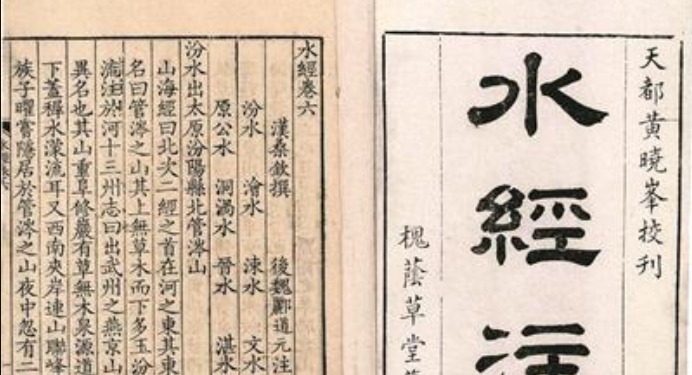 天都黄曉峯校刊
水經注
槐蔭草堂
水經卷六
漢桑欽撰 後魏酈道元注
汾水 澮水 涑水 文水
原公水 洞渦水 晉水 湛水
汾水出太原汾陽縣北管涔山
山海經曰北次二經之首在河之東其東
名曰管涔之山其上無草木而下多玉汾
注於河十三州志曰出武州之燕京山
異名也其山重阜修巖有草無木泉源導
下蓋稚水濛流耳又西南夾岸連山聯峰
族子曜嘗隱居於管涔之山夜中忽有二